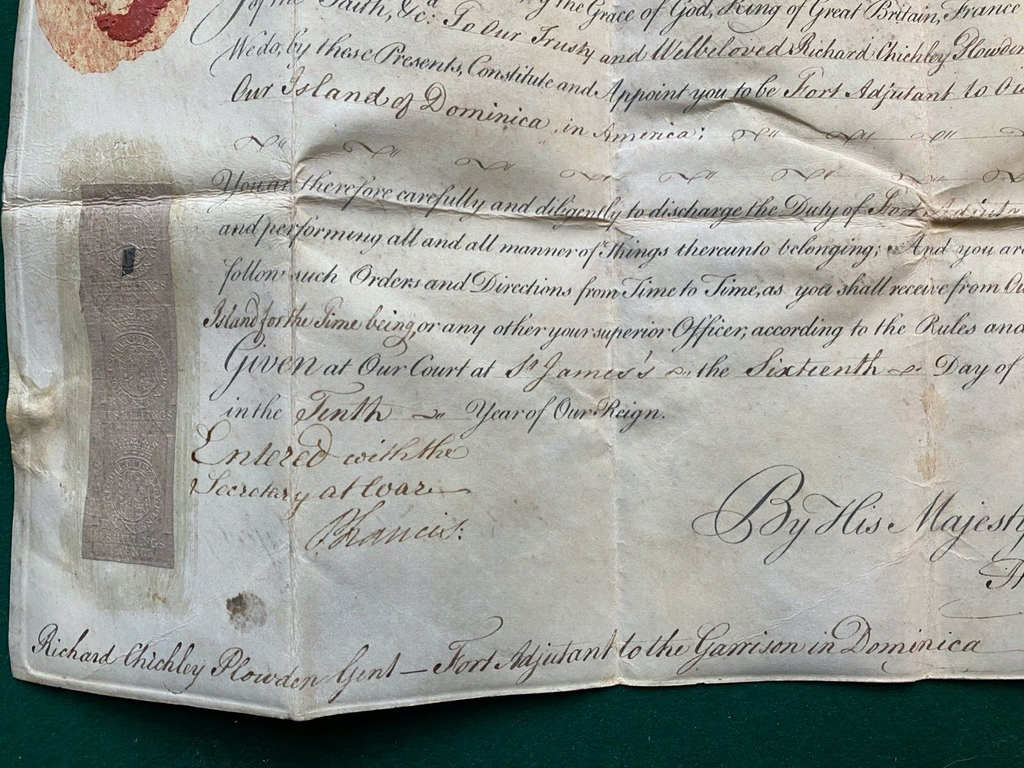 of the Faith, &c: To Our Trusty and Welbeloved Richard Chichley Plowden
by the Grace of God, King of Great Britain, France
We do, by these Presents, Constitute and Appoint you to be Fort Adjutant to Our
Our Island of Dominica, in America;
You are therefore carefully and diligently to discharge the Duty of Fort Adjutant
and performing all and all manner of Things thereunto belonging; And you are
follow such Orders and Directions from Time to Time, as you shall receive from Our
Island for the Time being, or any other your superior Officer, according to the Rules and
Given at Our Court at St James's the Sixteenth Day of
in the Tenth Year of Our Reign.
Entered with the
Secretary at War
P Francis.
By His Majesty
SHILLINGS
Richard Chichley Plowden Gent — Fort Adjutant to the Garrison in Dominica